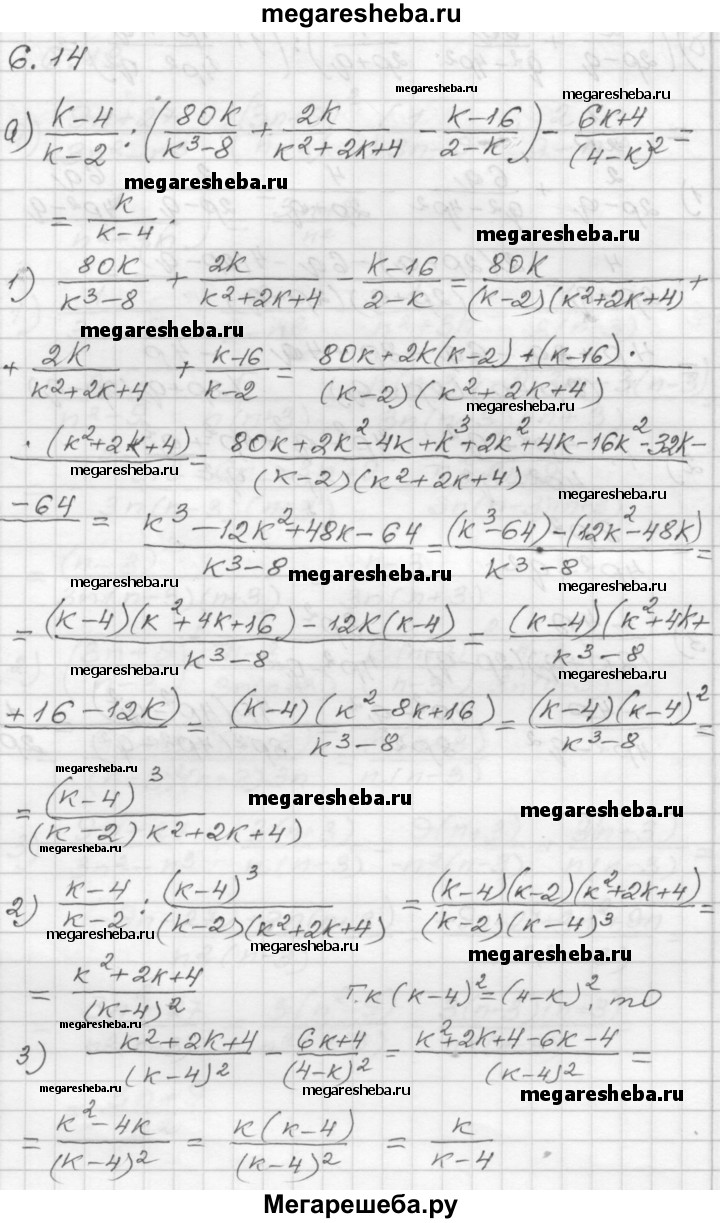 megaresheba.ru
6.14
megaresheba.ru
megaresheba.ru
а) (k-4)/(k-2) : (80k/(k³-8) + 2k/(k²+2k+4) - (k-16)/(2-k)) - (6k+4)/(4-k)² =
megaresheba.ru
= k/(k-4).
megaresheba.ru
1) 80k/(k³-8) + 2k/(k²+2k+4) - (k-16)/(2-k) = 80k/((k-2)(k²+2k+4)) +
megaresheba.ru
+ 2k/(k²+2k+4) + (k-16)/(k-2) = (80k+2k(k-2)+(k-16)·/((k-2)(k²+2k+4))
megaresheba.ru
·(k²+2k+4) = (80k+2k²-4k+k³+2k²+4k-16k²-32k-/((k-2)(k²+2k+4))
megaresheba.ru
megaresheba.ru
-64 = (k³-12k²+48k-64)/(k³-8) = ((k³-64)-(12k²-48k))/(k³-8) =
megaresheba.ru
megaresheba.ru
= ((k-4)(k²+4k+16)-12k(k-4))/(k³-8) = (k-4)(k²+4k+/(k³-8)
megaresheba.ru
megaresheba.ru
+16-12k) = ((k-4)(k²-8k+16))/(k³-8) = ((k-4)(k-4)²)/(k³-8) =
megaresheba.ru
megaresheba.ru
megaresheba.ru
= (k-4)³/((k-2) k²+2k+4)
megaresheba.ru
2) (k-4)/(k-2) : (k-4)³/((k-2)(k²+2k+4)) = ((k-4)(k-2)(k²+2k+4))/((k-2)(k-4)³) =
megaresheba.ru
megaresheba.ru
megaresheba.ru
= (k²+2k+4)/(k-4)² т.к (k-4)²=(4-k)², то
megaresheba.ru
3) (k²+2k+4)/(k-4)² - (6k+4)/(4-k)² = (k²+2k+4-6k-4)/(k-4)² =
megaresheba.ru
megaresheba.ru
megaresheba.ru
= (k²-4k)/(k-4)² = k(k-4)/(k-4)² = k/(k-4)
Мегарешеба.ру